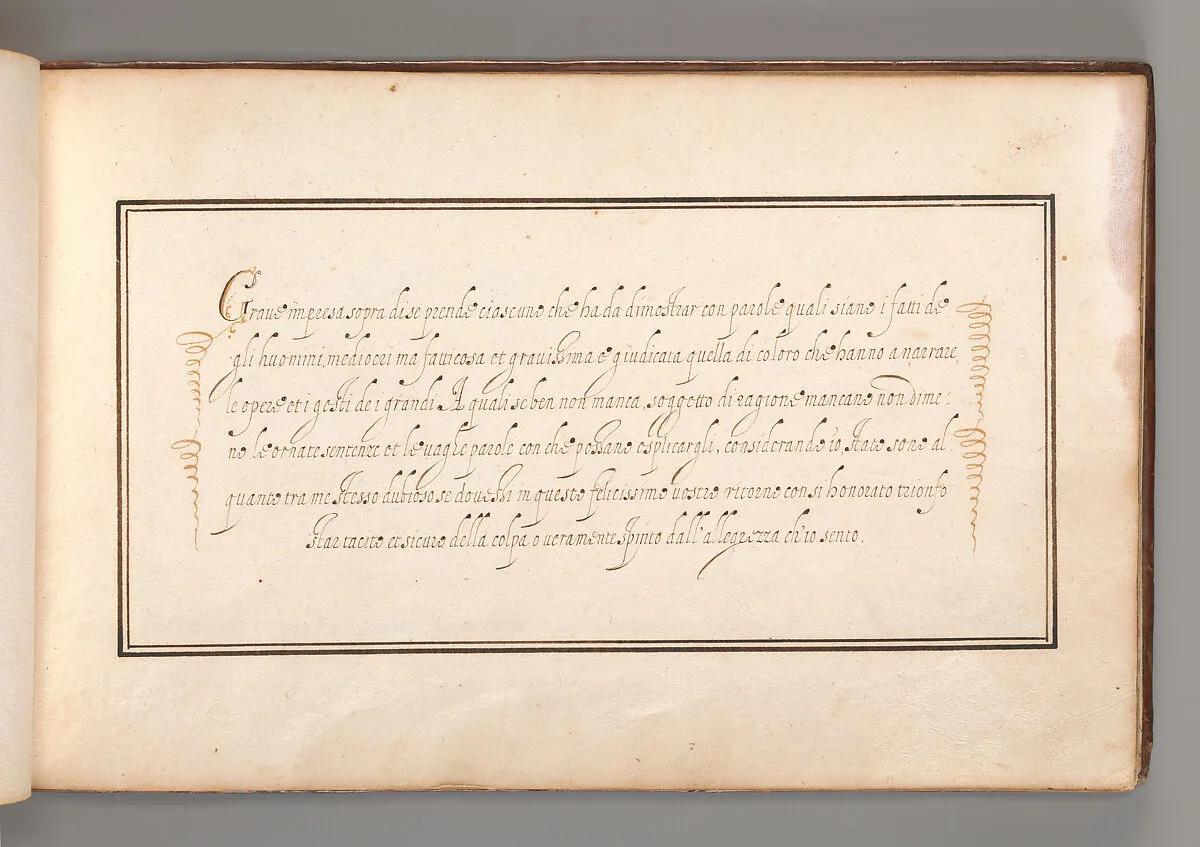 Graue impresa sopra di se prende ciascuno che ha da dimostrar con parole quali siano i fatti de
gli huomini, mediocri ma fatticosa et grauissima e giudicata quella di coloro che hanno a narrare,
le opere et i gesti de i grandi. A quali se ben non manca, soggetto di ragione mancano non dime:
no le ornate sentenze et le uaghe parole con che possano esplicargli, considerando io, stato sono al
quanto tra me stesso dubioso se douessi in questo felicissimo uostro ritorno con si honorato trionfo
star tacito et sicuro della colpa o ueramente spinto dall'allegrezza ch'io sento.